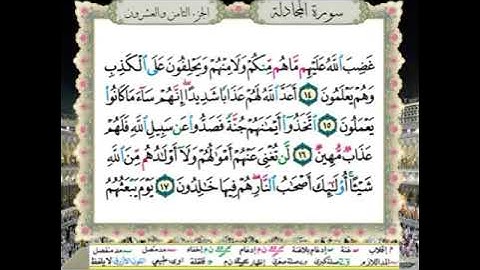 الجزء الثامن والعشرون
سورة المجادلة
غَضِبَ ٱللَّهُ عَلَيْهِم مَّا هُم مِّنكُمْ وَلَا مِنْهُمْ وَيَحْلِفُونَ عَلَى ٱلْكَذِبِ
وَهُمْ يَعْلَمُونَ ١٤ أَعَدَّ ٱللَّهُ لَهُمْ عَذَابًا شَدِيدًا إِنَّهُمْ سَآءَ مَا كَانُوا۟
يَعْمَلُونَ ١٥ ٱتَّخَذُوٓا۟ أَيْمَـٰنَهُمْ جُنَّةً فَصَدُّوا۟ عَن سَبِيلِ ٱللَّهِ فَلَهُمْ
عَذَابٌ مُّهِينٌ ١٦ لَّن تُغْنِىَ عَنْهُمْ أَمْوَٰلُهُمْ وَلَآ أَوْلَـٰدُهُم مِّنَ ٱللَّهِ
شَيْـًٔا أُو۟لَـٰٓئِكَ أَصْحَـٰبُ ٱلنَّارِ هُمْ فِيهَا خَـٰلِدُونَ ١٧ يَوْمَ يَبْعَثُهُمُ